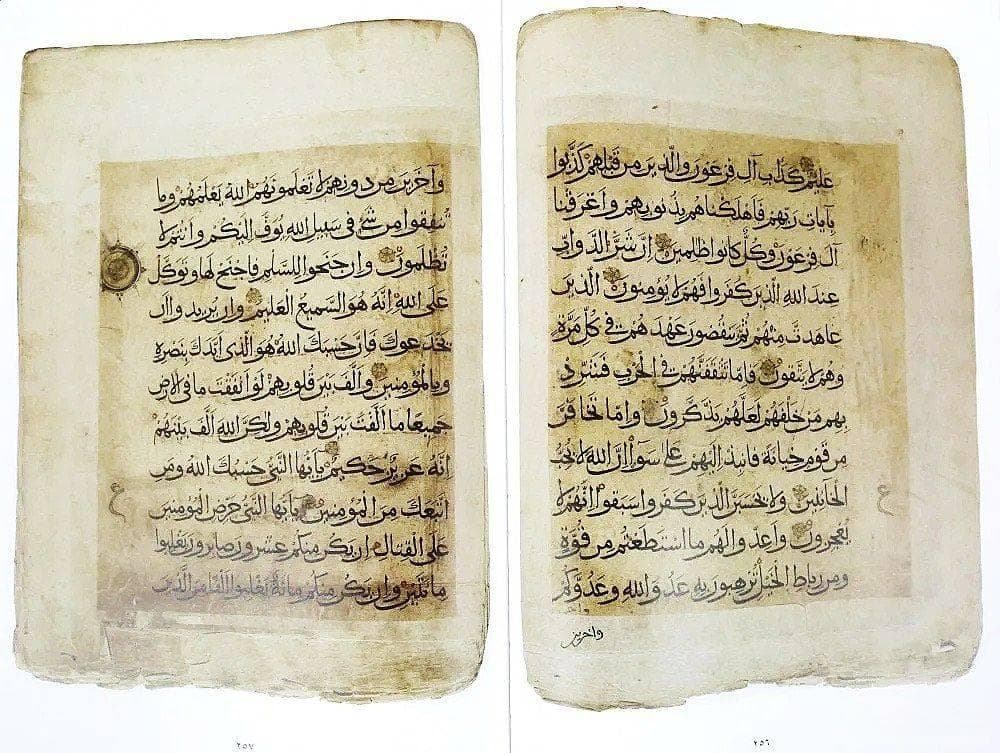 عليم كدأب آل فرعون والذين من قبلهم كذبوا
بآيات ربهم فأهلكناهم بذنوبهم وأغرقنا
آل فرعون وكل كانوا ظلمين إن شر الدواب
عند الله الذين كفروا فهم لا يؤمنون الذين
عاهدت منهم ثم ينقضون عهدهم في كل مرة
وهم لا يتقون فإما تثقفنهم في الحرب فشرد
بهم من خلفهم لعلهم يذكرون وإما تخافن
من قوم خيانة فانبذ إليهم على سواء إن الله لا يحب
الخائنين ولا يحسبن الذين كفروا سبقوا إنهم لا
يعجزون وأعدوا لهم ما استطعتم من قوة
ومن رباط الخيل ترهبون به عدو الله وعدوكم
واخرين
٢٥٦
وآخرين من دونهم لا تعلمونهم الله يعلمهم وما
تنفقوا من شيء في سبيل الله يوف إليكم وأنتم لا
تظلمون وإن جنحوا للسلم فاجنح لها وتوكل
على الله إنه هو السميع العليم وإن يريدوا أن
يخدعوك فإن حسبك الله هو الذي أيدك بنصره
وبالمؤمنين وألف بين قلوبهم لو أنفقت ما في الأرض
جميعا ما ألفت بين قلوبهم ولكن الله ألف بينهم
إنه عزيز حكيم يأيها النبي حسبك الله ومن
اتبعك من المؤمنين يأيها النبي حرض المؤمنين
على القتال إن يكن منكم عشرون صابرون يغلبوا
مائتين وإن يكن منكم مائة يغلبوا ألفا من الذين
ع
٢٥٧